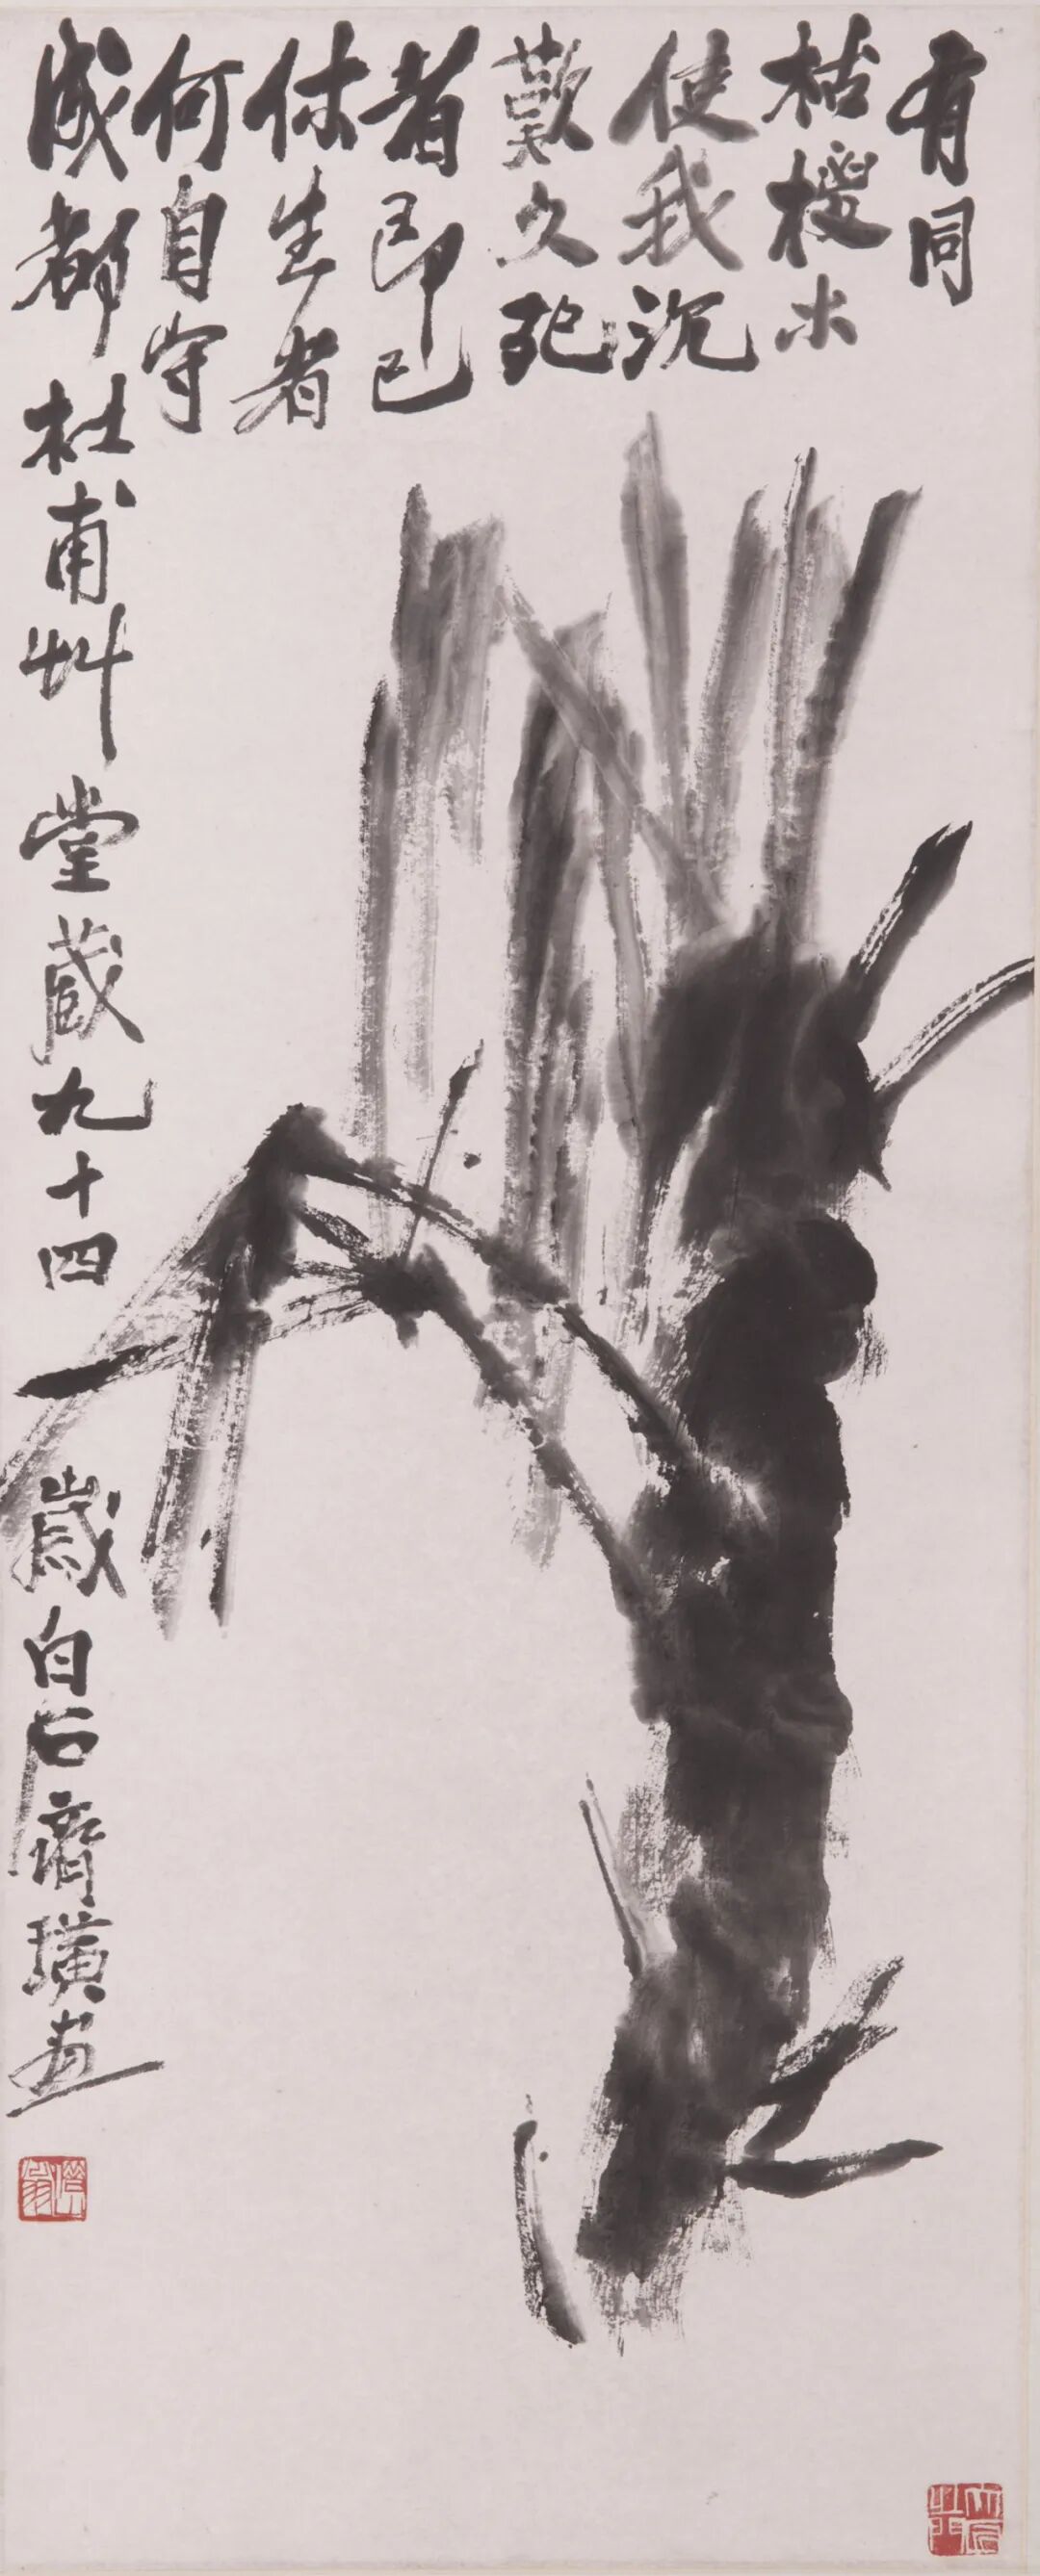 有同
枯椶木
使我沉
歎久死
者即已
休生者
何自守
成都杜甫艸堂藏九十四歲白石齊璜畫
大匠之門